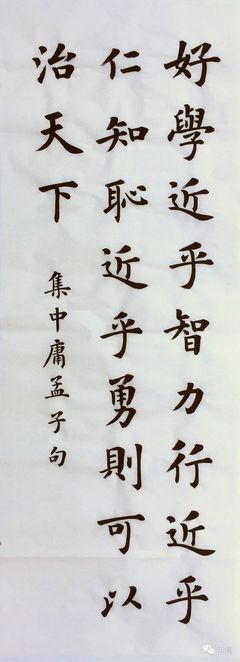 好學近乎智力行近乎
仁知恥近乎勇則可以
治天下
集中庸孟子句